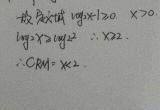 故定义域 log₂x-1≥0 x>0.
log₂x≥log₂2 ∴x≥2.
∴CRM=x<2.